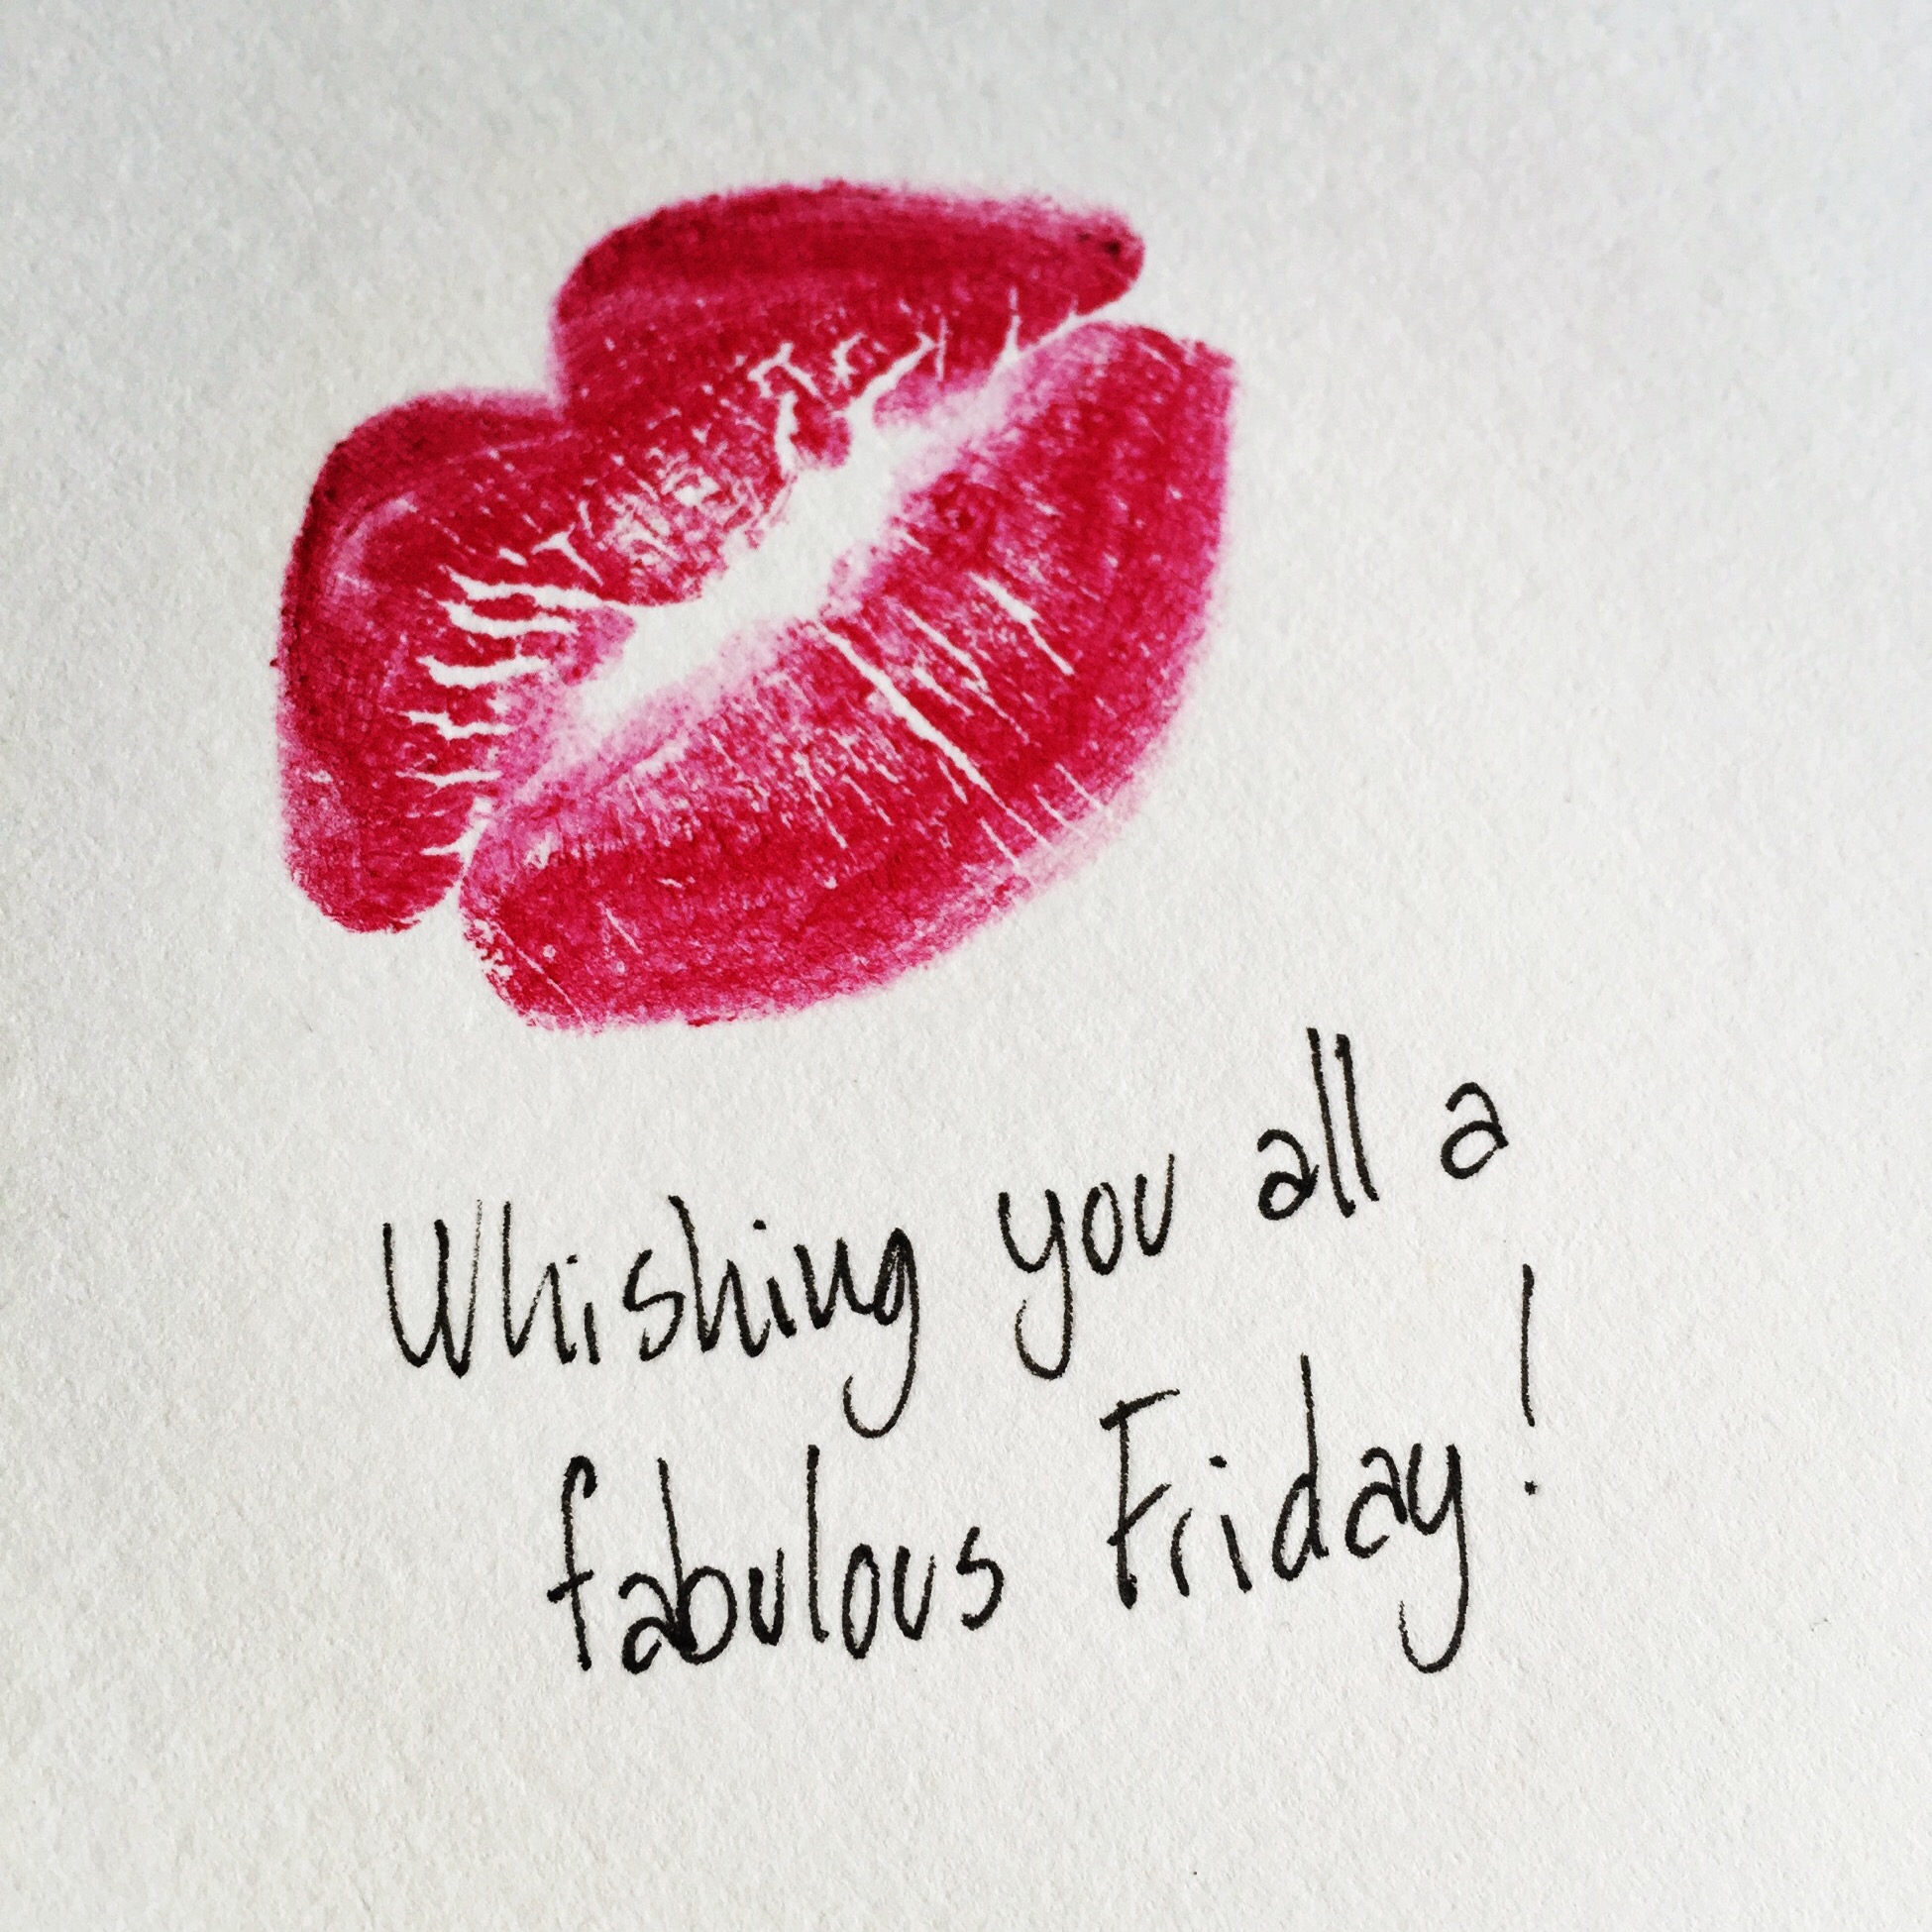 Whishing you all a
fabulous Friday!